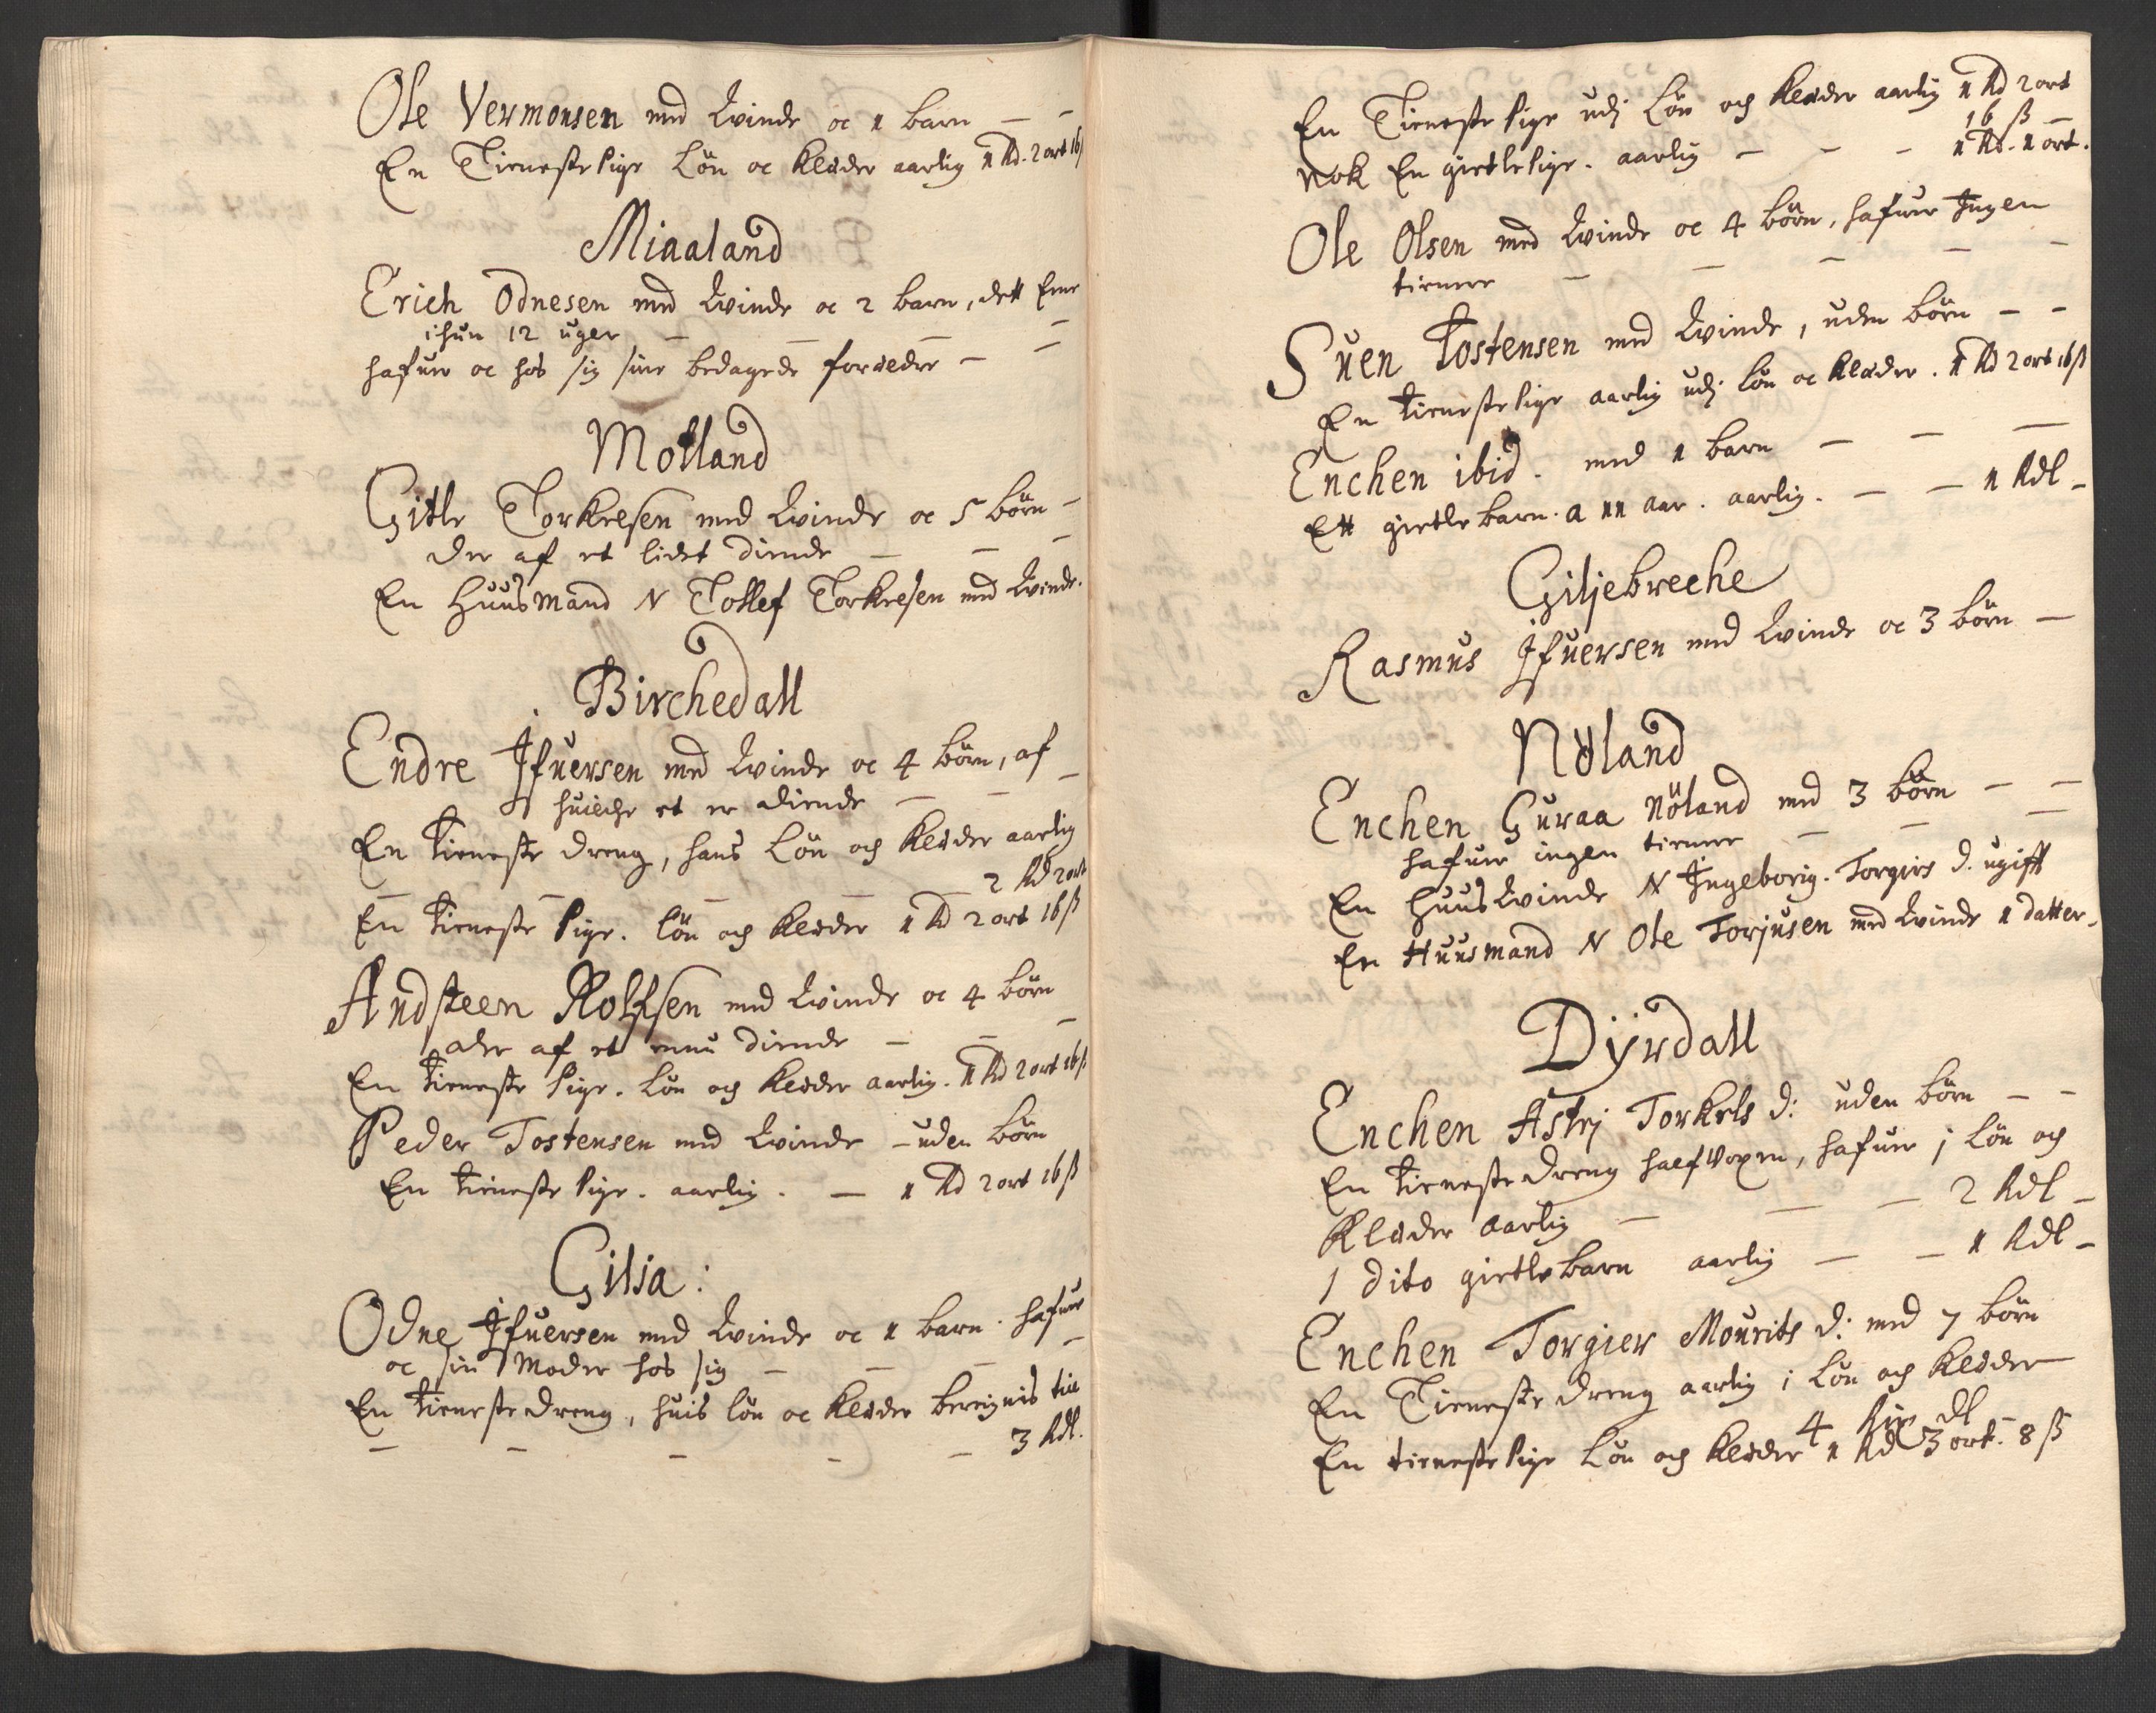 Ole Vermonsen med Kvinde oc 1 barn — —
En Tieneste Pige Løn oc Klæder aarlig 1 Rd. 2 ort 16 ß
Miaaland
Erich Odnesen med Kvinde oc 2 barn, dett Eene
ichun 12 uger — — —
hafuer oc hos sig sine bedagede forældre — —
Motland
Gitle Torkelsen med Kvinde oc 5 børn —
der af et lidet diende — — —
En Huusmand N Tollef Torkelsen med Kvinde.
Birchedall
Endre Ifuersen med Kvinde oc 4 børn, af
huilche et er diende — — —
En tieneste dreng, hans Løn och Klæder aarlig
— — — — 2 Rd 2 ort
En tieneste Pige. løn och Klæder 1 Rd 2 ort 16 ß
Andsteen Rolfsen med Kvinde oc 4 børn
der af et ennu diende — — —
En tieneste Pige. Løn och Klæder aarlig. 1 Rd 2 ort 16 ß
Peder Tostensen med Kvinde — uden børn
En tieneste Pige. aarlig. — 1 Rd 2 ort 16 ß
Gilia:
Odne Ifuersen med Kvinde oc 1 barn. hafuer
oc sin Moder hos sig — — — —
En tieneste dreng, huis løn oc Klæder bereignis till
— — — — — 3 Rdl.
En Tieneste Pige udj Løn och Klæder aarlig 1 Rd 2 ort
16 ß —
Nok En gietlePige. aarlig — — — 1 Rd. 1 ort.
Ole Olsen med Kvinde oc 4 børn, hafuer Ingen
tienere — — — — —
Suen Tostensen med Kvinde, uden børn — —
En tieneste Pige aarlig udj Løn oc Klæder. 1 Rd 2 ort 16 ß
Enchen ibid. med 1 barn — — —
Ett gietle barn. a 11 aar. aarlig. — — 1 Rdl —
Giljebreche
Rasmus Ifuersen med Kvinde oc 3 børn —
Nøland
Enchen Guraa Nøland med 3 børn — —
hafuer ingen tienere — — —
En Huuskvinde N Ingeborig. Torgiers d. ugift
En Huusmand N Ole Torjusen med Kvinde 1 datter.
Dÿrdall
Enchen Astrj Torkels d: uden børn — —
En tieneste dreng halfvoxen, hafuer j Løn och
Klæder aarlig — — — 2 Rdl —
1 dito gietle barn aarlig — — 1 Rdl —
Enchen Torgier Mourits d: med 7 børn
En Tieneste dreng aarlig i Løn och Klæder
4 Rix dl
En tieneste Pige Løn och Klæder 1 Rd 3 ort. 8 ß